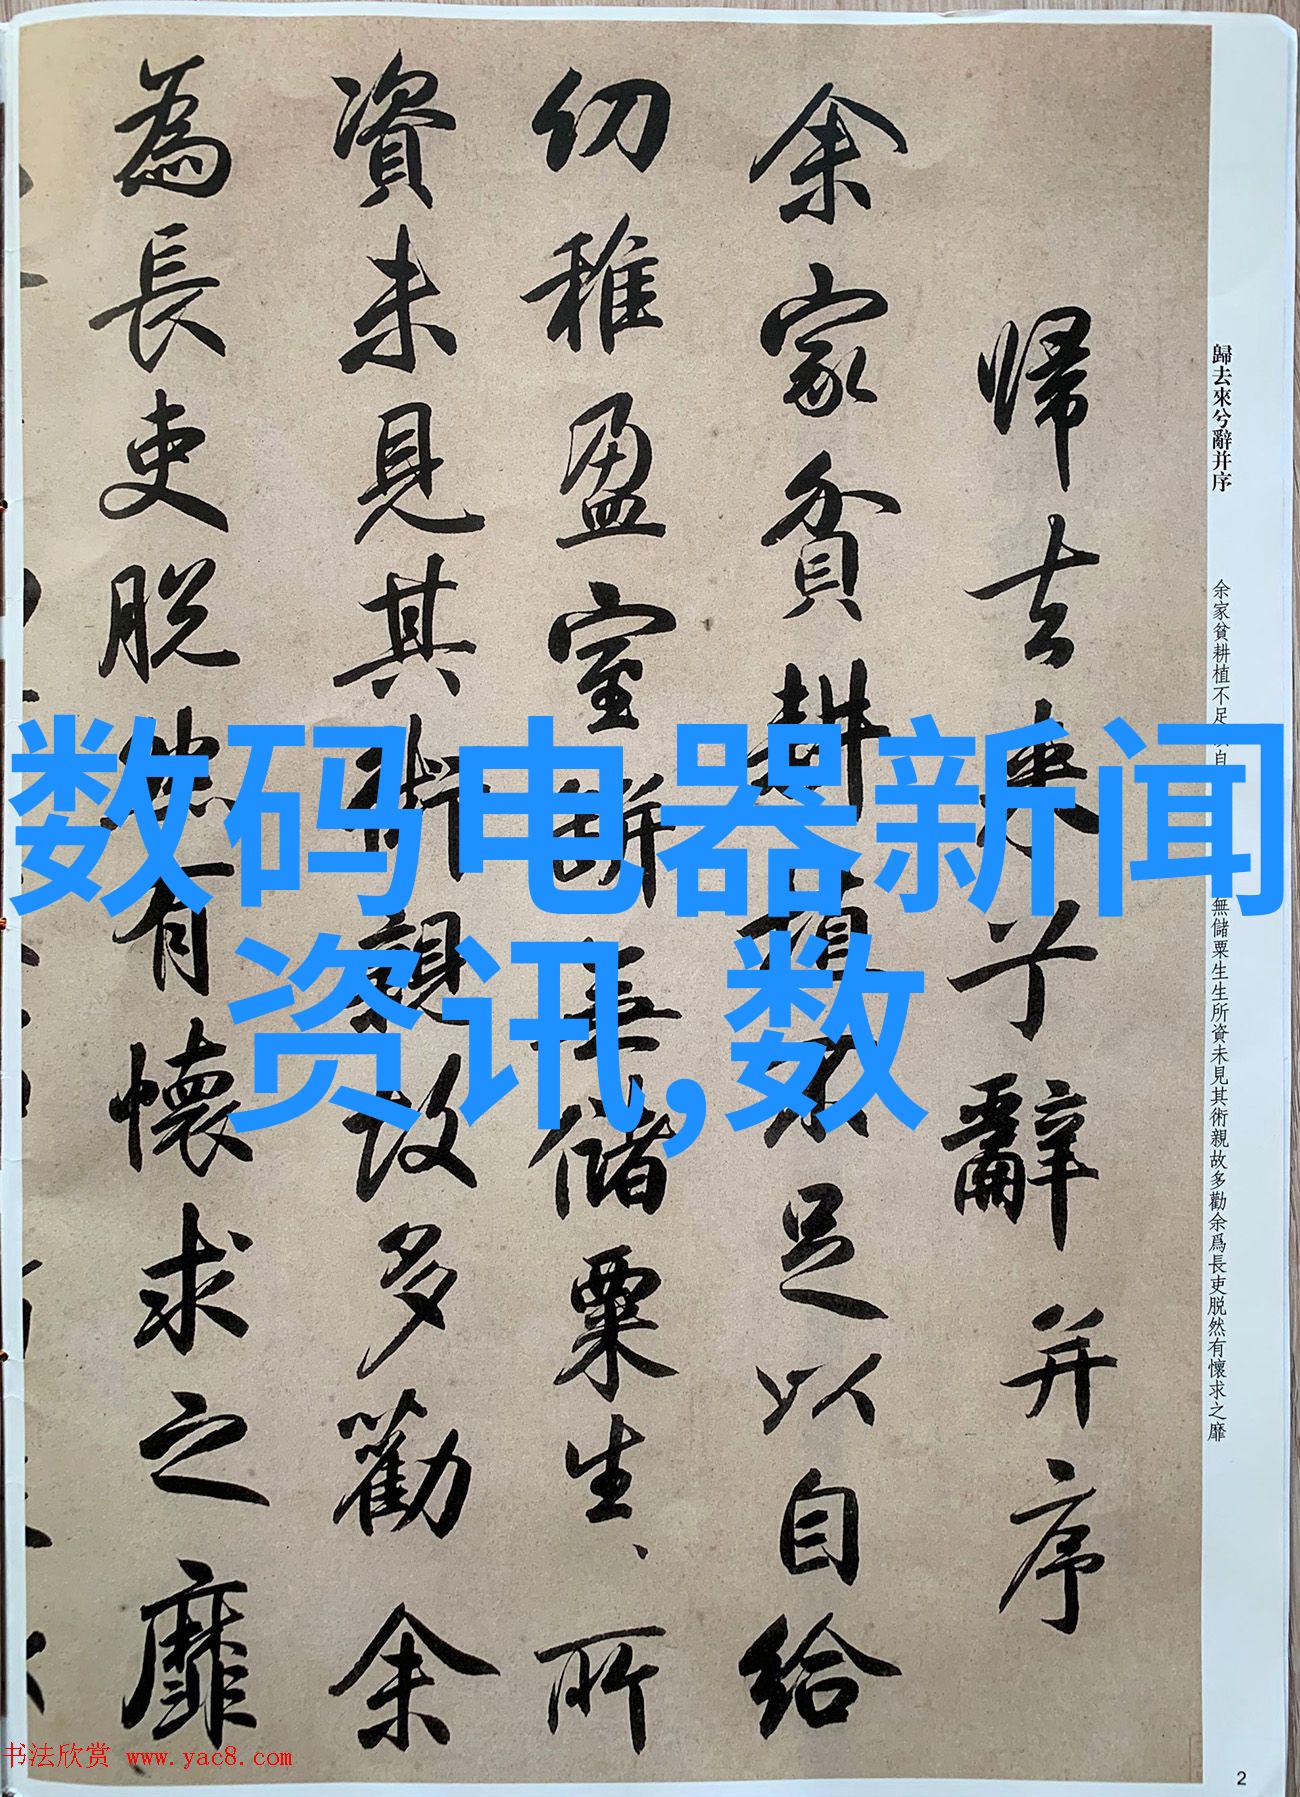 歸去來兮辭并序
余家貧耕植不足以自
給
幼稚盈室缾無儲粟生、所
資未見其術親故多勸余
為長吏脱然有懷求之靡
歸去來兮辭并序
余家貧耕植不足
自
無儲粟生生所資未見其術親故多勸余爲長吏脱然有懷求之靡
数码电器新闻
资讯,数
书法欣赏 www.yac8.com
2